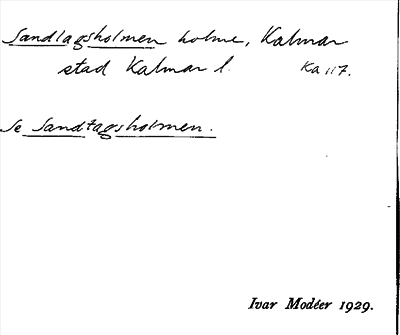 Sandlagsholmen holme, Kalmar
stad Kalmar l. Ka 117.
Se Sandtagsholmen.
Ivar Modéer 1929.